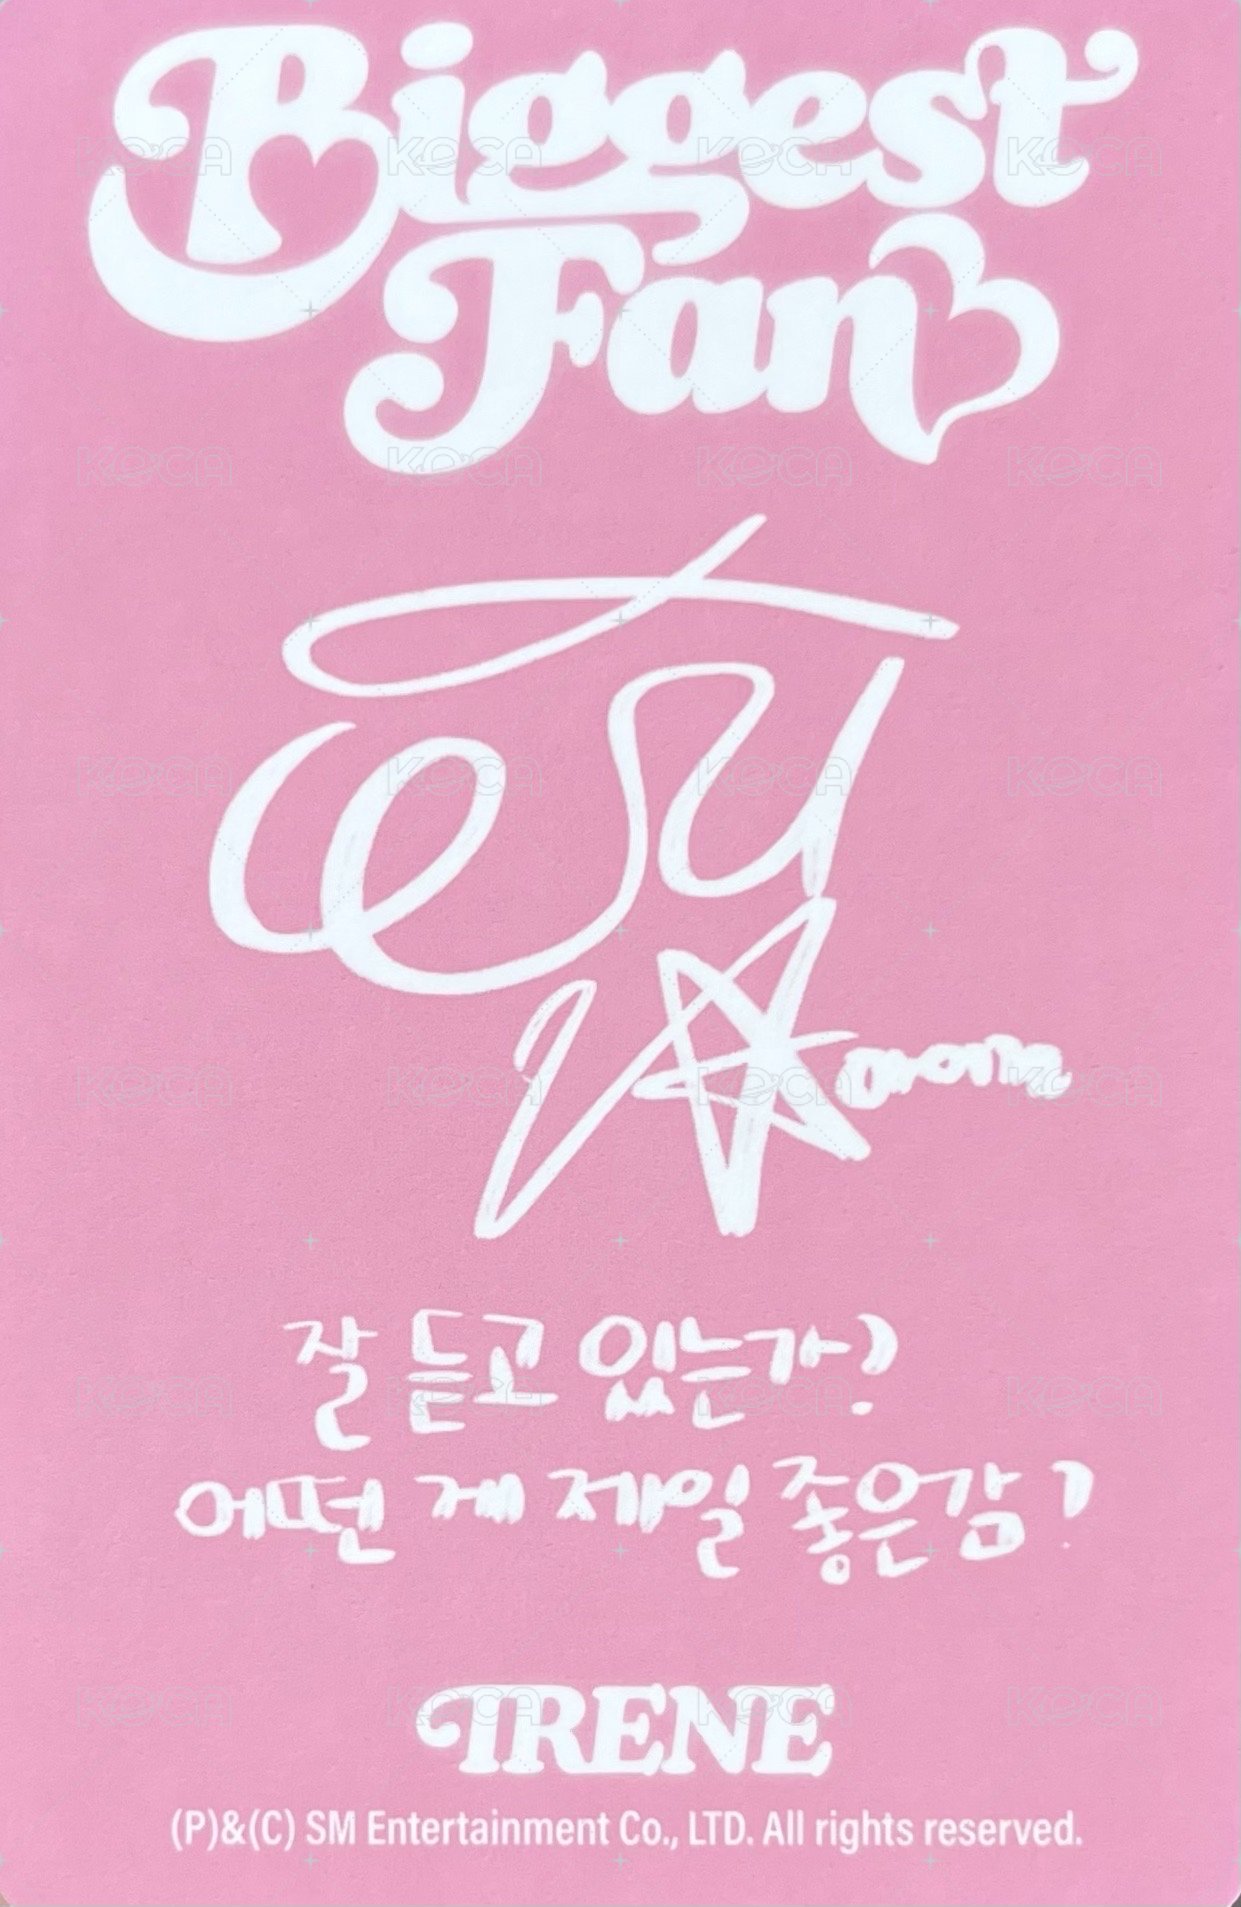 Biggest
Fan
잘 듣고 있는가?
어떤 게 제일 좋은감?
IRENE
(P)&(C) SM Entertainment Co., LTD. All rights reserved.
KOCA